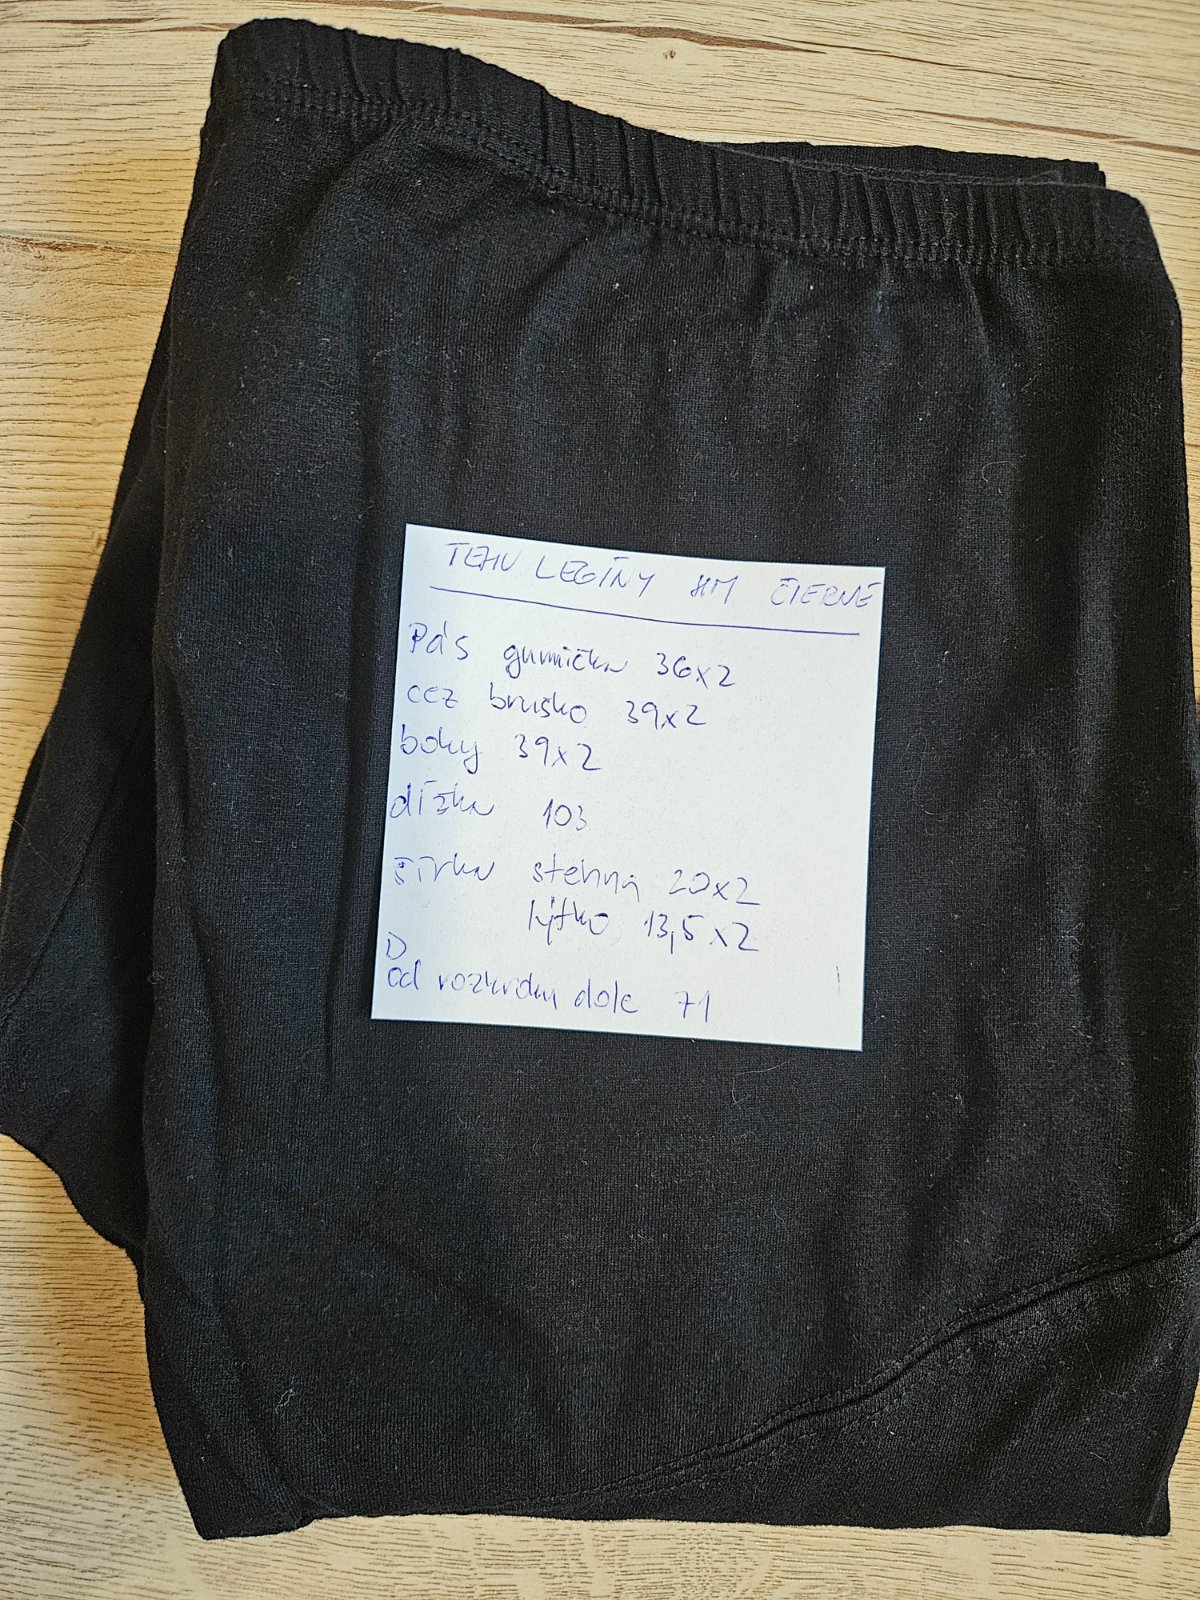 TEHU LEGÍNY HM ČIERNE
Pás gumička 36x2
cez bruško 39x2
boky 39x2
dĺžka 103
šírka stehná 20x2
lýtko 13,5x2
D
od rozkroku dole 71